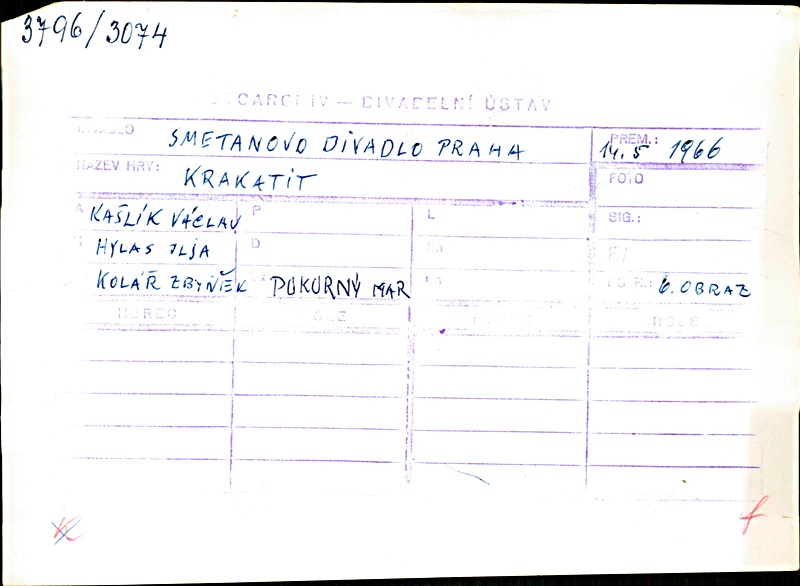 3796/3074
DIVADELNÍ ÚSTAV
SMETANOVO DIVADLO PRAHA
PREM.: 14.5 1966
NÁZEV HRY: KRAKATIT
FOTO
KAŠLÍK VÁCLAV P L SIG.:
HYLAS ILJA D
KOLÁŘ ZBYNĚK POKORNÝ MAR 6. OBRAZ
HEREC ROLE